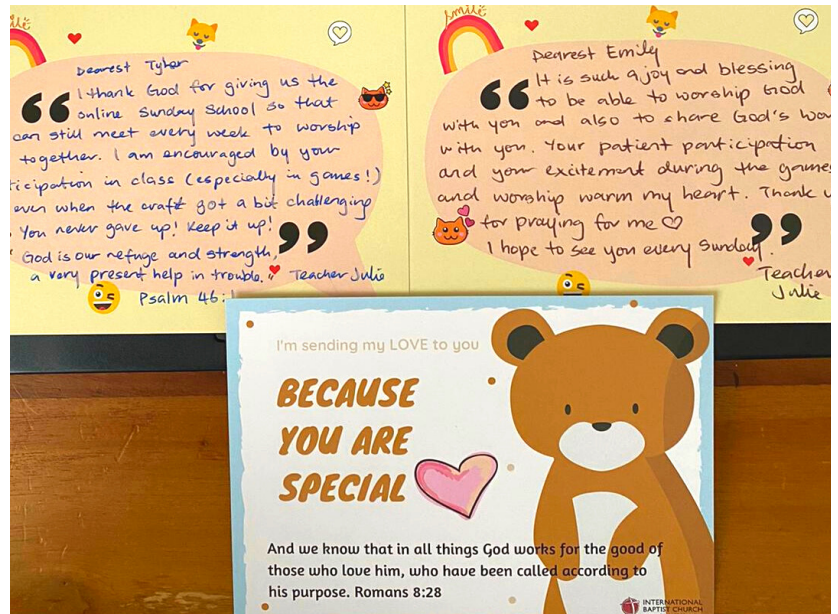 Dearest Tyler
I thank God for giving us the
online Sunday School so that
can still meet every week to worship
together. I am encouraged by your
ticipation in class (especially in games!)
even when the craft got a bit challenging
You never gave up! Keep it up!
God is our refuge and strength,
a very present help in trouble." Teacher Julie
Psalm 46:1
smile
Dearest Emily
It is such a joy and blessing
to be able to worship God
with you and also to share God's
with you. Your patient participation
and your excitement during the games
and worship warm my heart. Thank
for praying for me
I hope to see you every Sunday.
Teacher
Julie
I'm sending my LOVE to you
BECAUSE
YOU ARE
SPECIAL
And we know that in all things God works for the good of
those who love him, who have been called according to
his purpose. Romans 8:28
INTERNATIONAL
BAPTIST CHURCH